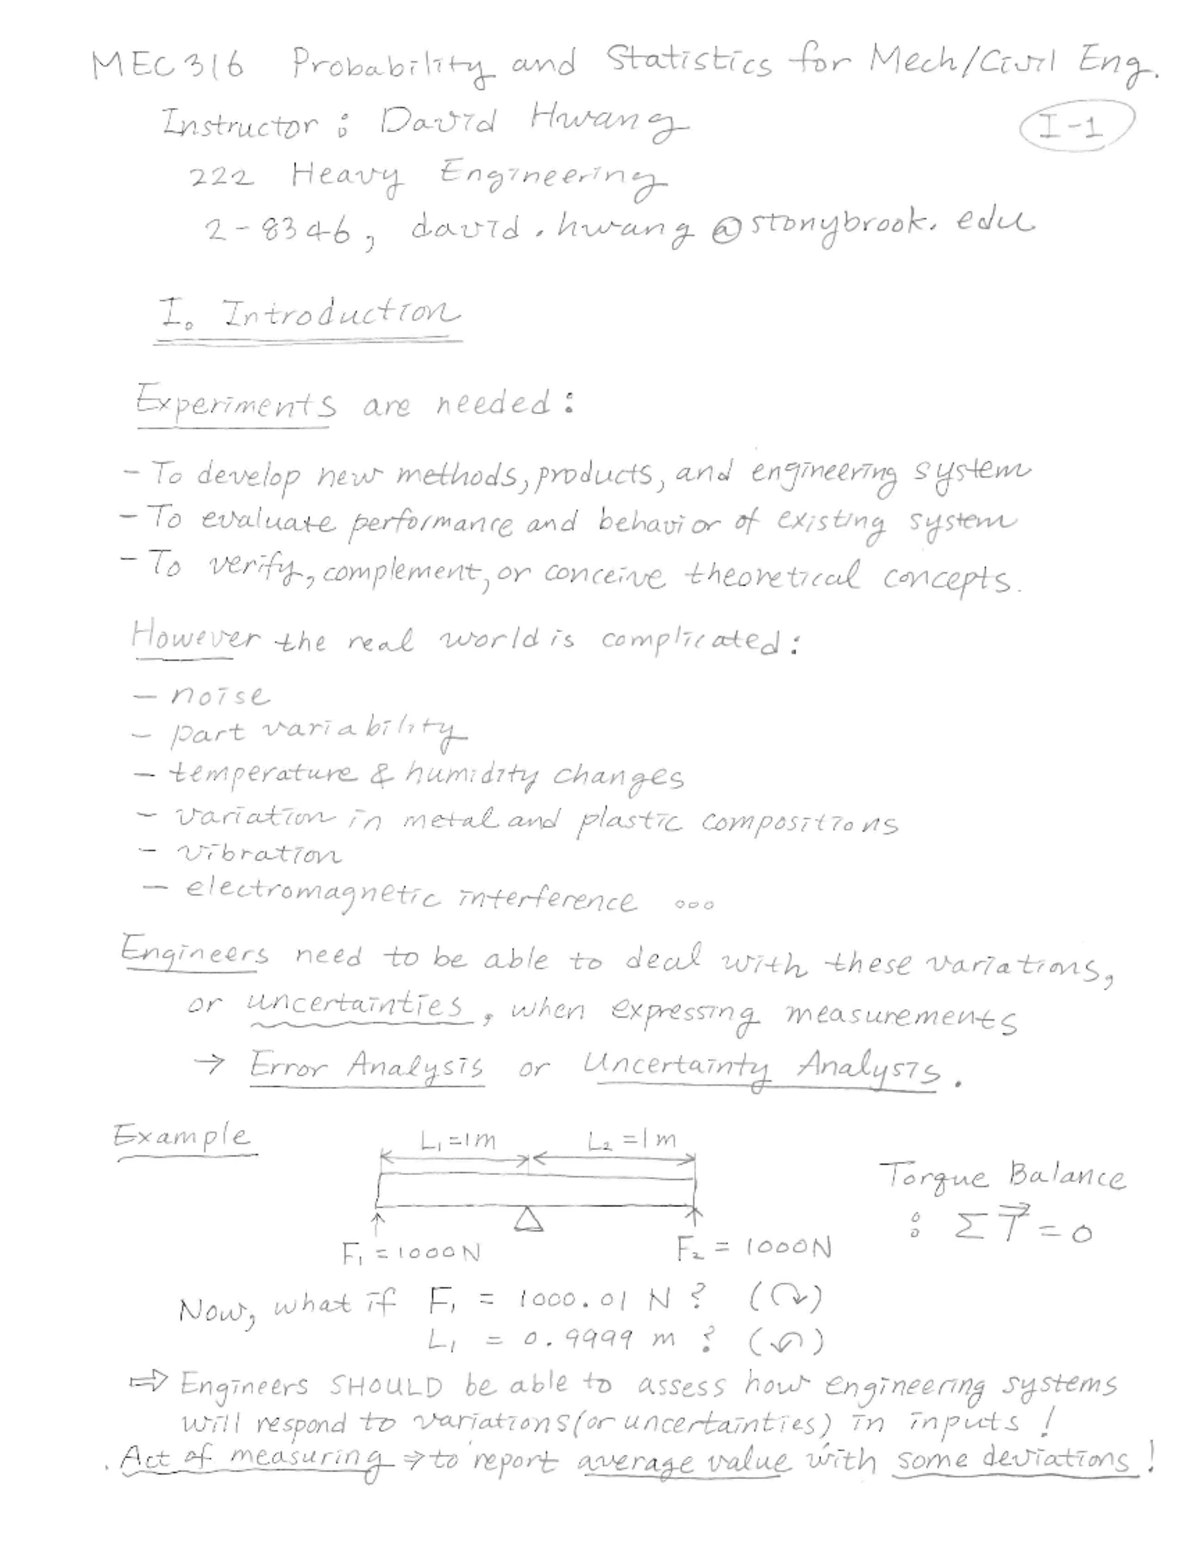 MEC316 Probability and Statistics for Mech/Civil Eng.
Instructor : David Hwang
I-1
222 Heavy Engineering
2-8346, david.hwang@stonybrook.edu
I. Introduction
Experiments are needed :
- To develop new methods, products, and engineering system
- To evaluate performance and behavior of existing system
- To verify, complement, or conceive theoretical concepts.
However the real world is complicated :
- noise
- part variability
- temperature & humidity changes
- variation in metal and plastic compositions
- vibration
- electromagnetic interference ...
Engineers need to be able to deal with these variations,
or uncertainties, when expressing measurements
→ Error Analysis or Uncertainty Analysis.
Example
L₁ = 1m L₂ = 1m
Torque Balance
: Σ T⃗ = 0
F₁ = 1000N F₂ = 1000N
Now, what if F₁ = 1000.01 N ? (↷)
L₁ = 0.9999 m ? (↶)
⇒ Engineers SHOULD be able to assess how engineering systems
will respond to variations (or uncertainties) in inputs !
. Act of measuring → to report average value with some deviations !